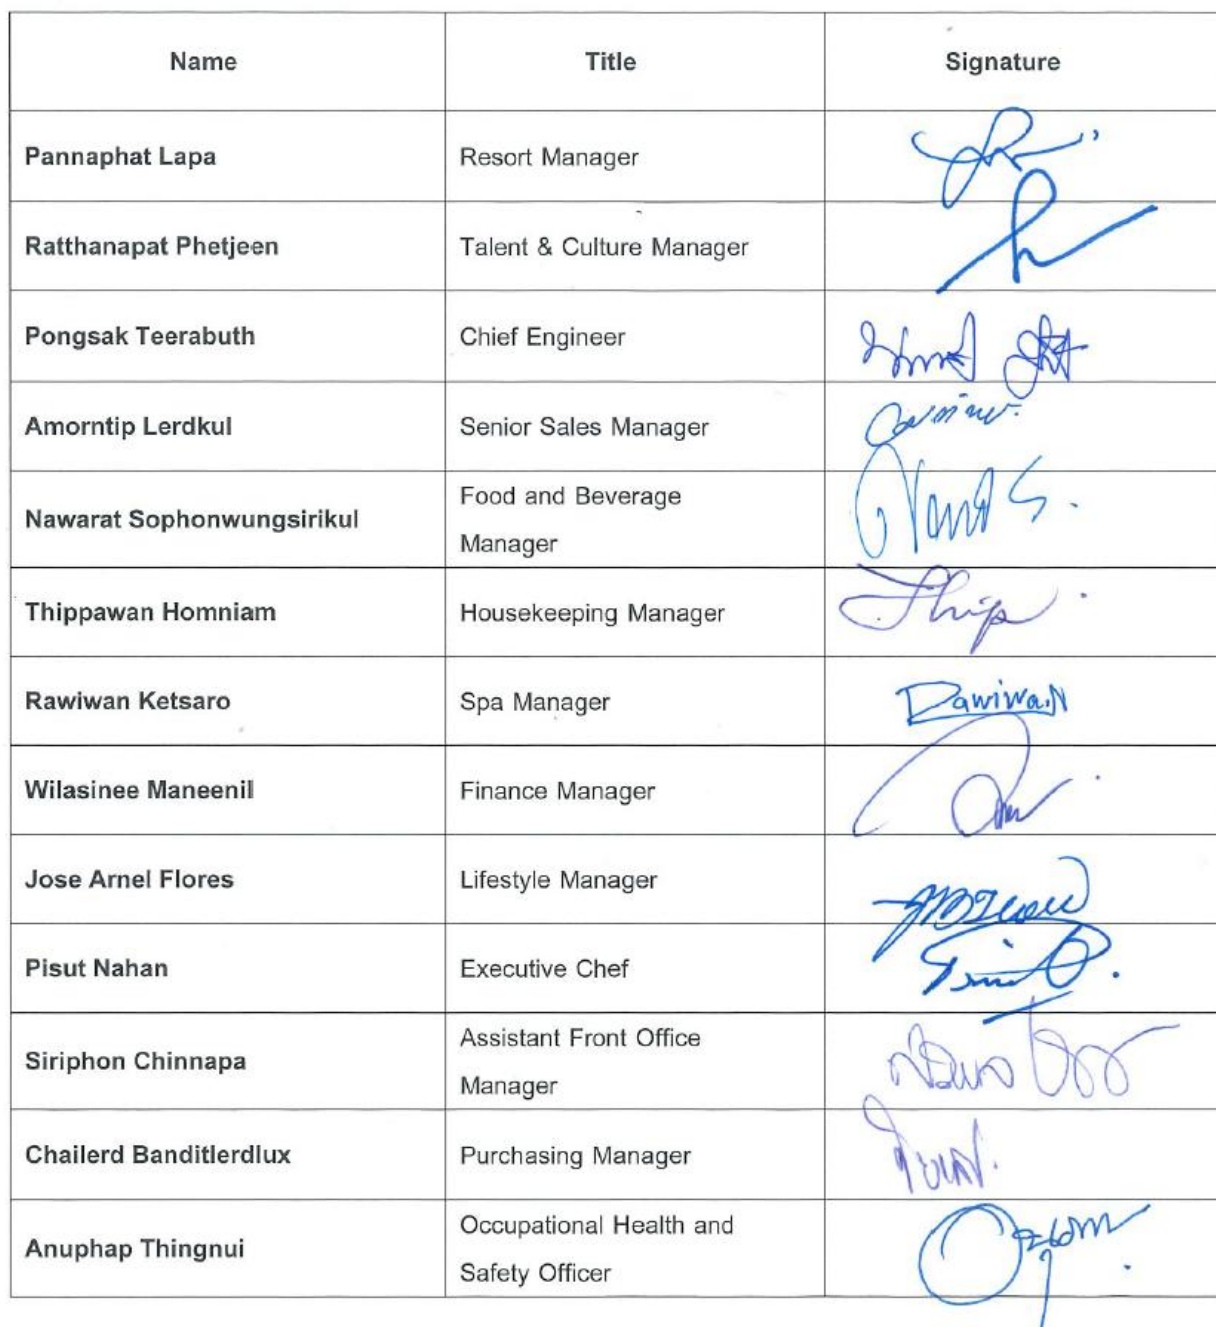 Name Title Signature
Pannaphat Lapa Resort Manager
Ratthanapat Phetjeen Talent & Culture Manager
Pongsak Teerabuth Chief Engineer
Amorntip Lerdkul Senior Sales Manager
Nawarat Sophonwungsirikul Food and Beverage
Manager
Thippawan Homniam Housekeeping Manager Thip
Rawiwan Ketsaro Spa Manager Rawiwan
Wilasinee Maneenil Finance Manager
Jose Arnel Flores Lifestyle Manager
Pisut Nahan Executive Chef
Siriphon Chinnapa Assistant Front Office
Manager
Chailerd Banditlerdlux Purchasing Manager
Anuphap Thingnui Occupational Health and
Safety Officer